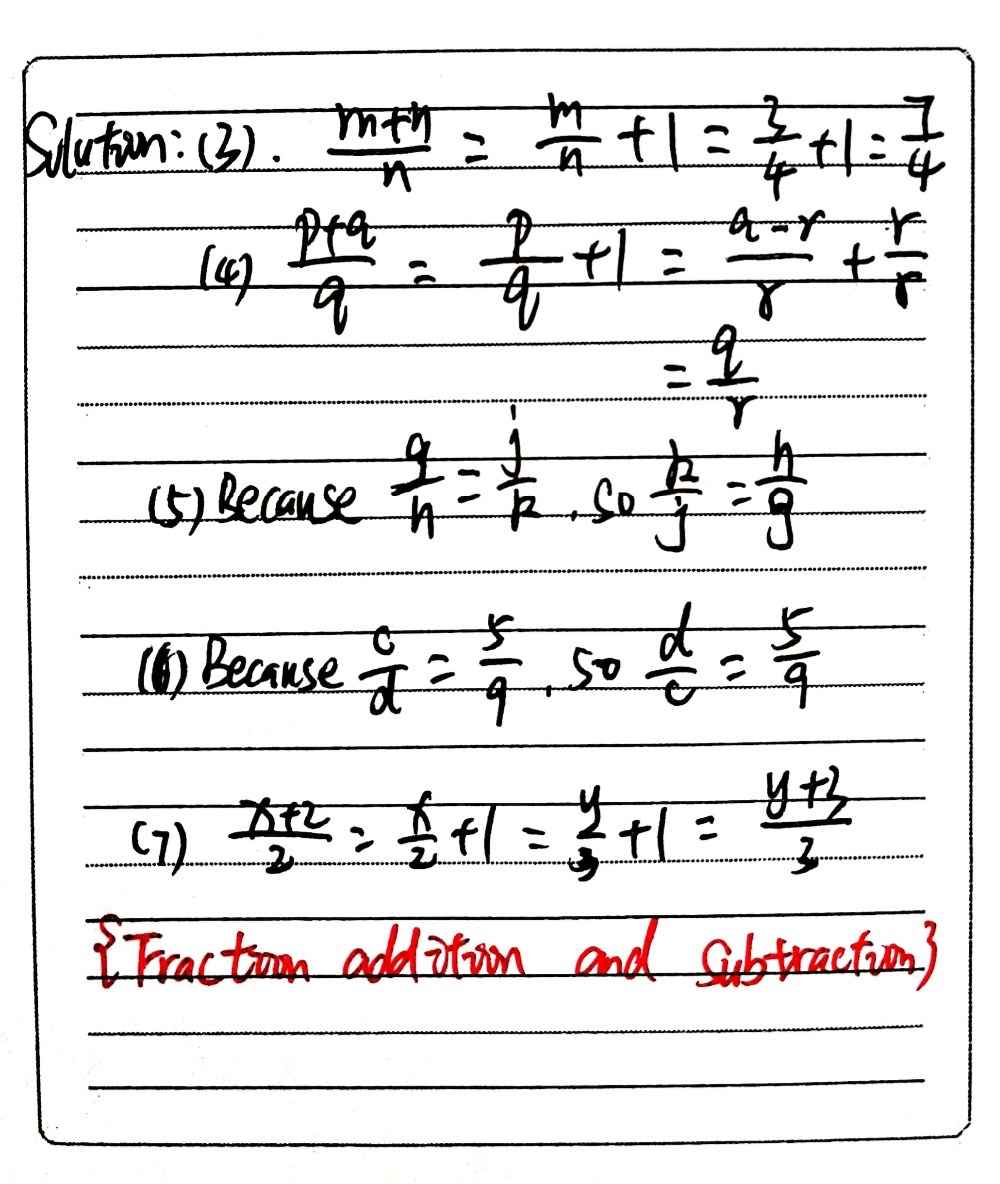 Solution: (3). (m+n)/n = m/n + 1 = 3/4 + 1 = 7/4
(4) (p+q)/q = p/q + 1 = (q-r)/r + r/r
= q/r
(5) Because g/h = j/k, so k/j = h/g
(6) Because c/d = 5/9, so d/c = 5/9
(7) (x+2)/2 = x/2 + 1 = y/3 + 1 = (y+3)/3
{Fraction addition and subtraction}